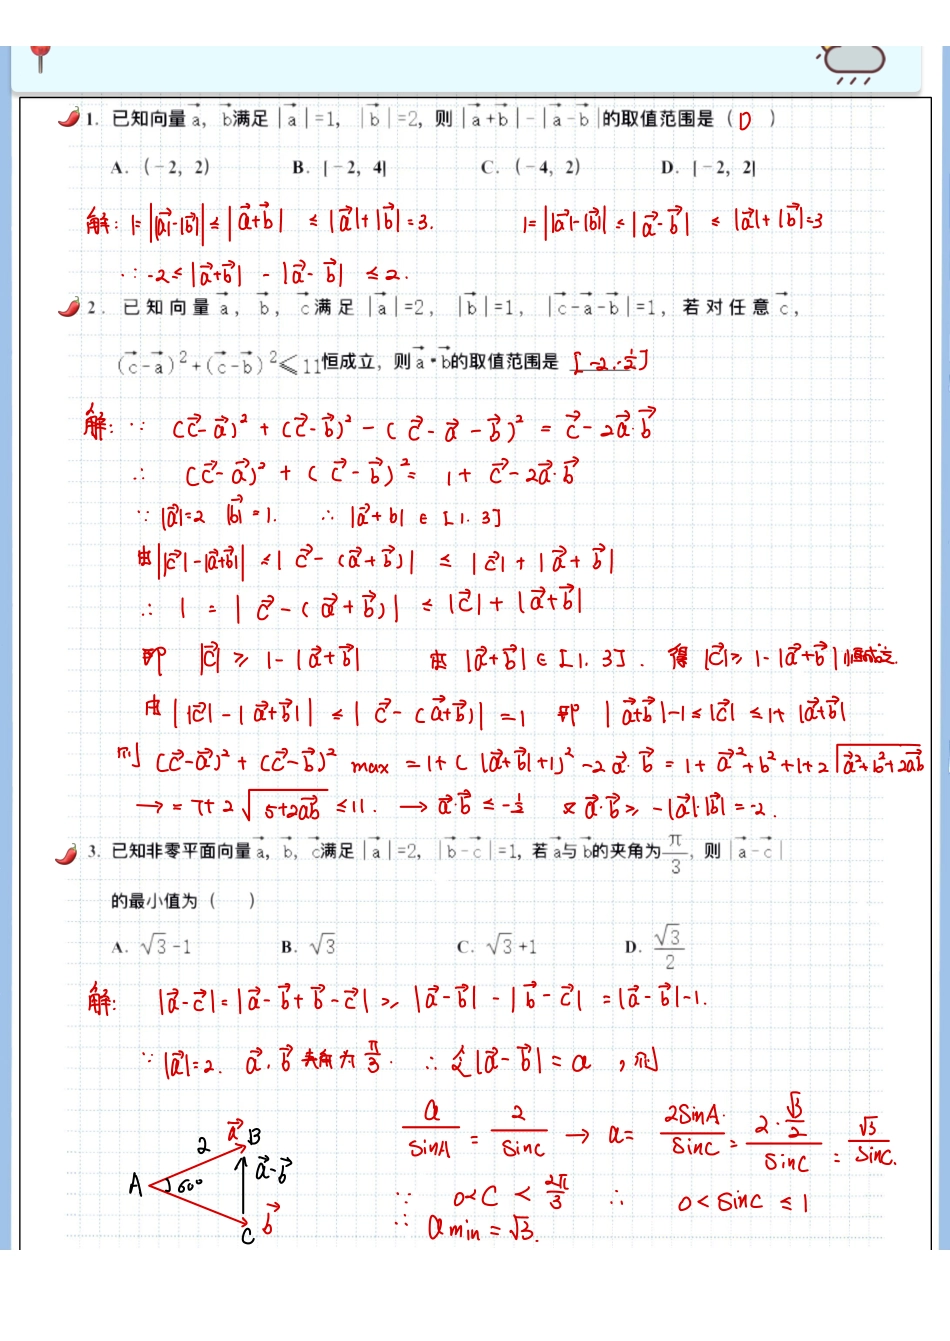 1. 已知向量a⃗, b⃗满足|a⃗|=1, |b⃗|=2, 则|a⃗+b⃗|-|a⃗-b⃗|的取值范围是( D )
A. (-2, 2) B. [-2, 4] C. (-4, 2) D. [-2, 2]
解: 1=||a⃗|-|b⃗||≤|a⃗+b⃗|≤|a⃗|+|b⃗|=3. 1=||a⃗|-|b⃗||≤|a⃗-b⃗|≤|a⃗|+|b⃗|=3
∴-2≤|a⃗+b⃗|-|a⃗-b⃗|≤2.
2. 已知向量a⃗, b⃗, c⃗满足|a⃗|=2, |b⃗|=1, |c⃗-a⃗-b⃗|=1, 若对任意c⃗,
(c⃗-a⃗)²+(c⃗-b⃗)²≤11恒成立, 则a⃗•b⃗的取值范围是 [-2,-½]
解: ∵ (c⃗-a⃗)²+(c⃗-b⃗)²-(c⃗-a⃗-b⃗)²=c⃗-2a⃗·b⃗
∴ (c⃗-a⃗)²+(c⃗-b⃗)²=1+c⃗-2a⃗·b⃗
∵ |a⃗|=2 |b⃗|=1. ∴ |a⃗+b|∈[1.3]
由||c⃗|-|a⃗+b⃗||≤|c⃗-(a⃗+b⃗)|≤|c⃗|+|a⃗+b⃗|
∴ 1=|c⃗-(a⃗+b⃗)|≤|c⃗|+|a⃗+b⃗|
即 |c⃗|≥1-|a⃗+b⃗| 由|a⃗+b⃗|∈[1.3]. 得|c⃗|≥1-|a⃗+b⃗|恒成立.
由||c⃗|-|a⃗+b⃗||≤|c⃗-(a⃗+b⃗)|=1 即 |a⃗+b⃗|-1≤|c⃗|≤1+|a⃗+b⃗|
则(c⃗-a⃗)²+(c⃗-b⃗)² max=1+(|a⃗+b⃗|+1)²-2a⃗·b⃗=1+a⃗²+b²+1+2√(a⃗²+b⃗²+2a⃗b⃗)
→=7+2√(5+2a⃗b⃗)≤11. → a⃗·b⃗≤-½ 又a⃗·b⃗≥-|a⃗|·|b⃗|=-2.
3. 已知非零平面向量a⃗, b⃗, c⃗满足|a⃗|=2, |b⃗-c⃗|=1, 若a⃗与b⃗的夹角为π/3, 则|a⃗-c⃗|
的最小值为( )
A. √3-1 B. √3 C. √3+1 D. √3/2
解: |a⃗-c⃗|=|a⃗-b⃗+b⃗-c⃗|≥|a⃗-b⃗|-|b⃗-c⃗|=|a⃗-b⃗|-1.
∵ |a⃗|=2. a⃗,b⃗夹角为π/3. ∴令|a⃗-b⃗|=a, 则
a/sinA=2/sinC → a=2sinA/sinC=(2·√3/2)/sinC=√3/sinC.
∵ 0<C<2π/3 ∴ 0<sinC≤1
∴ amin=√3.
2 a⃗ B
A 60° a⃗-b⃗
C b⃗